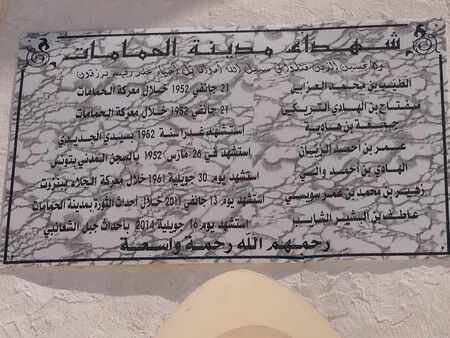 شهداء مدينة الحمامات
ولا تحسبن الذين قتلوا في سبيل الله أمواتا بل أحياء عند ربهم يرزقون
الطيب بن محمد العزابي 21 جانفي 1952 خلال معركة الحمامات
مفتاح بن الهادي التريكي 21 جانفي 1952 خلال معركة الحمامات
جمعة بن هادية استشهد غدرا سنة 1952 بسيدي الجديدي
عمر بن أحمد الزيان استشهد في 26 مارس 1952 بالسجن المدني بتونس
الهادي بن أحمد والي استشهد يوم 30 جويلية 1961 خلال معركة الجلاء ببنزرت
زهير بن محمد بن عمر سويسي استشهد يوم 13 جانفي 2011 خلال أحداث الثورة بمدينة الحمامات
عاطف بن البشير الشايب استشهد يوم 16 جويلية 2014 بأحداث جبل الشعانبي
رحمهم الله رحمة واسعة